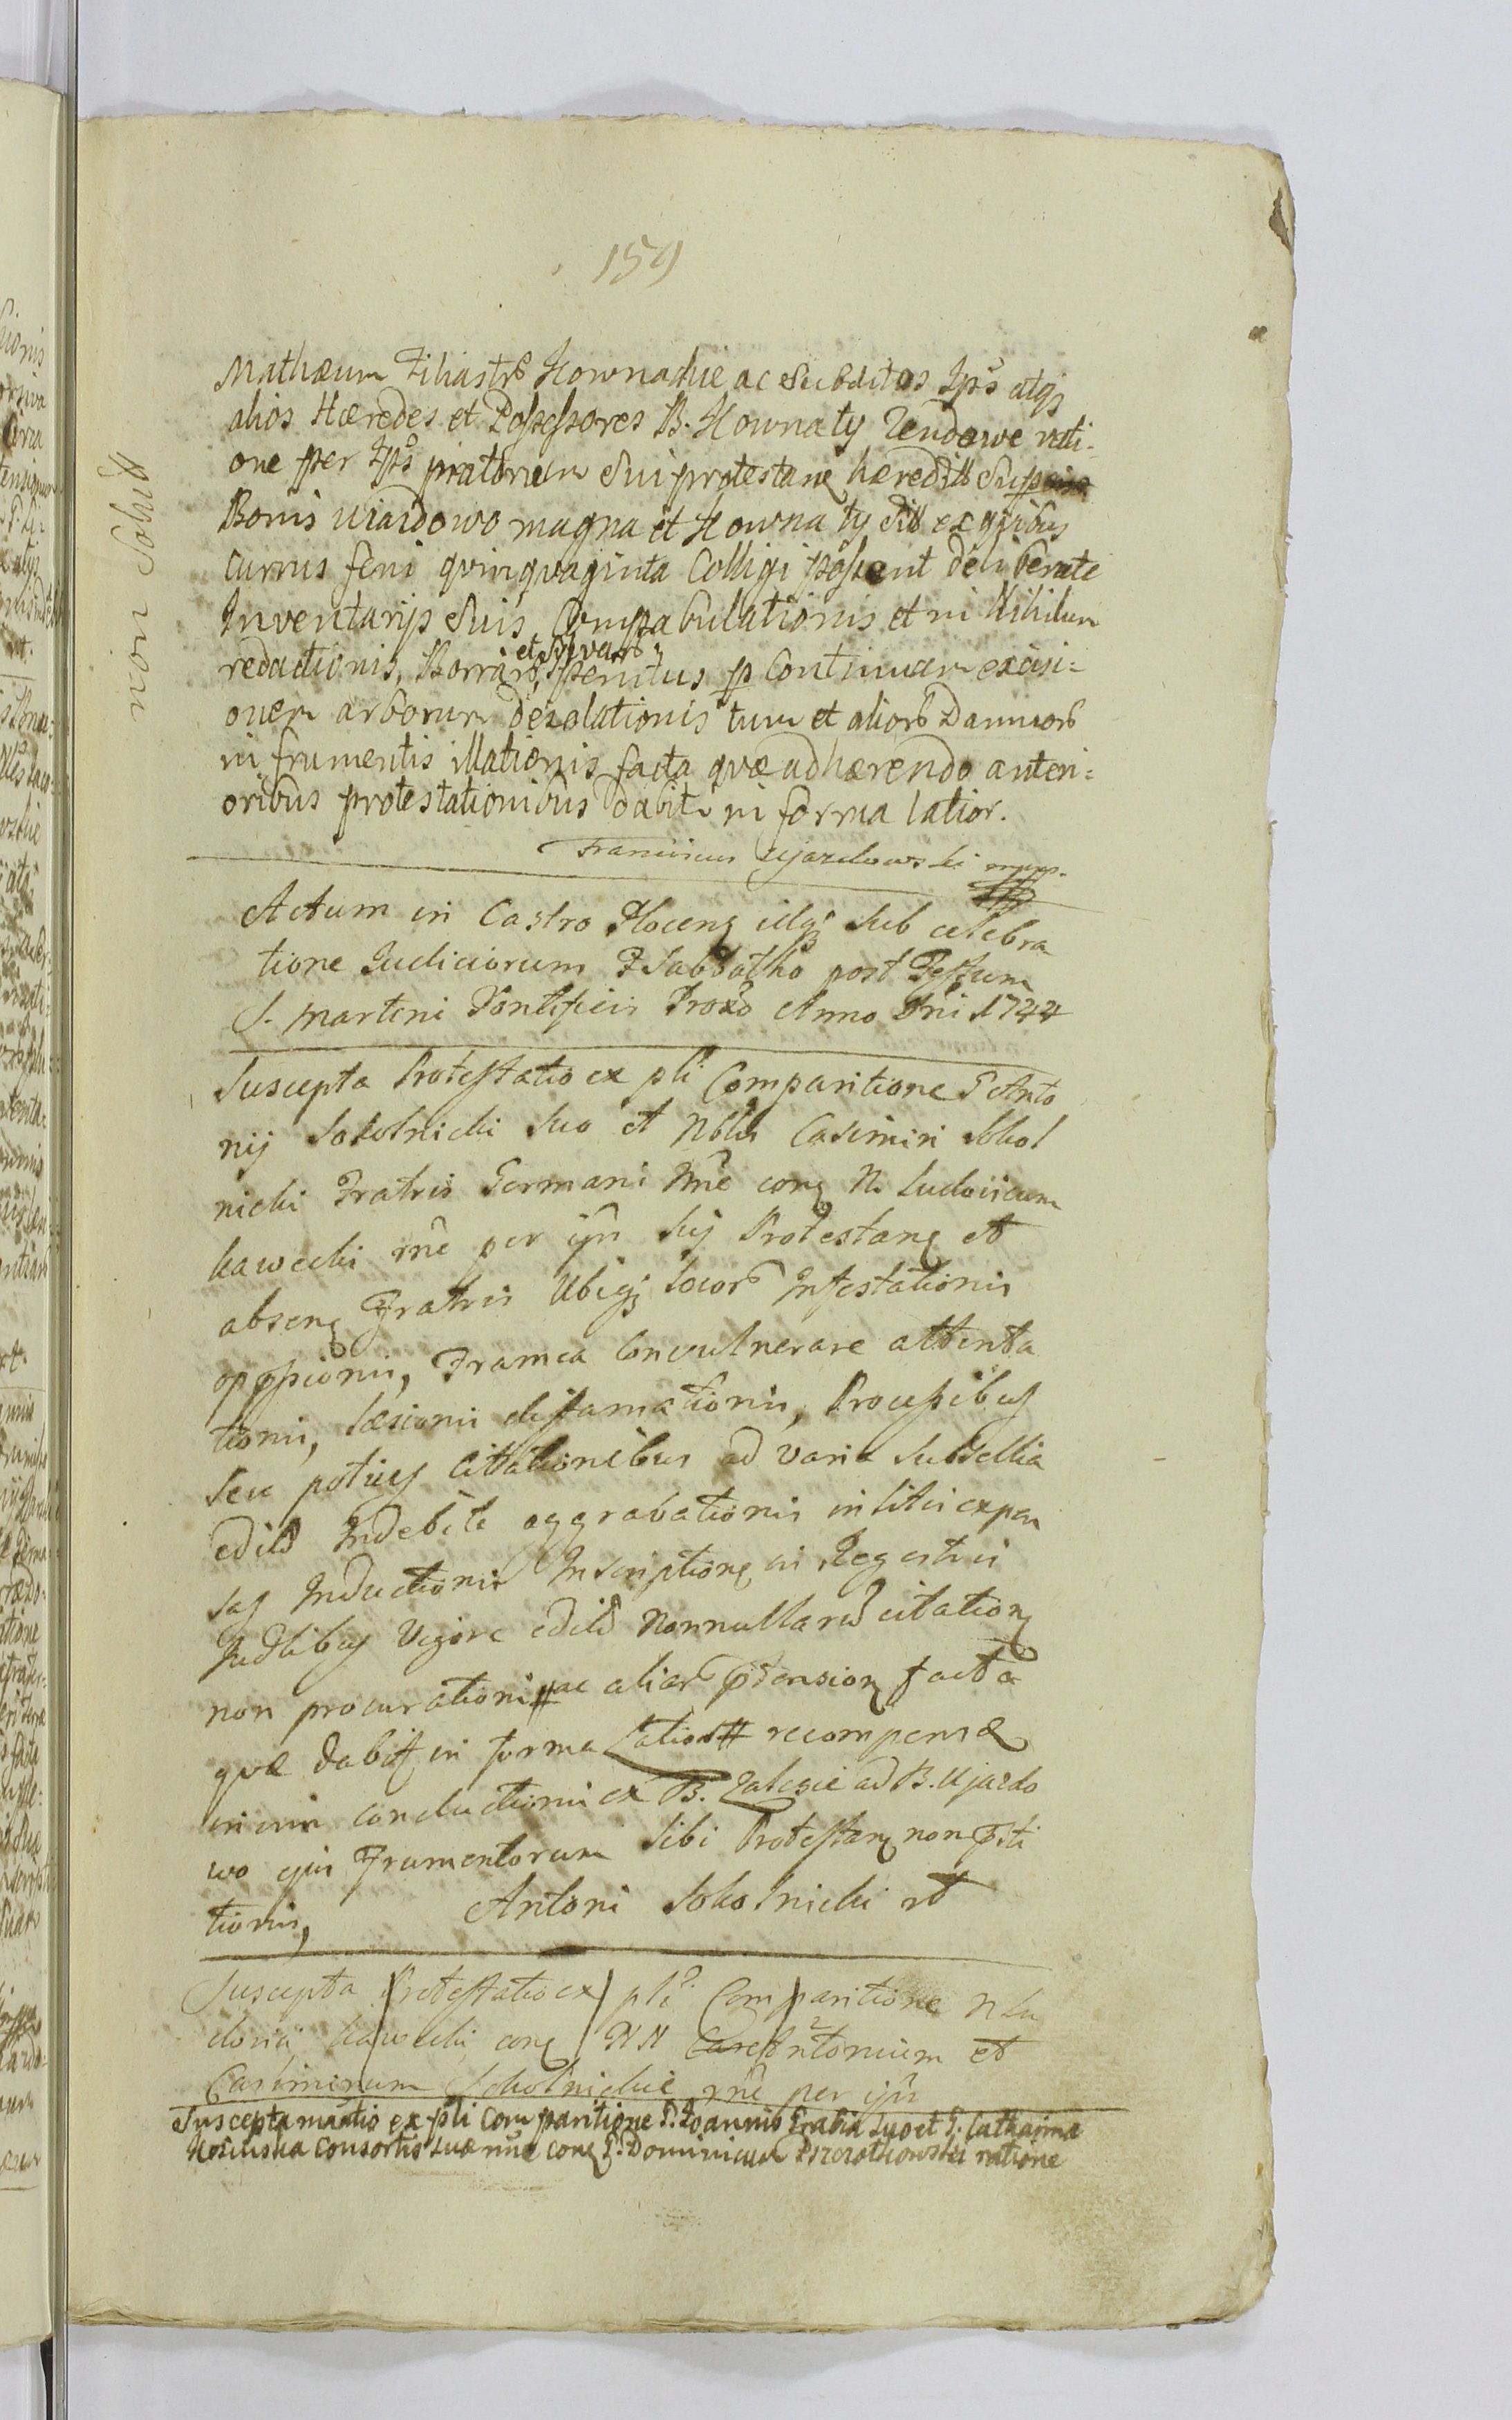 159
non Solutt
Mathæum Filiastrs Kownackie ac Subditos Ips atqz
alios Hæredes et Possessores B. Kownaty Zendowe rati-
one per Ips pratorum Sui protestanq hæreditt
Bonis Uiazdowo magna et Kownaty Sitt ex quibus
currus feni quinquaginta Colligi possent deliberate
Inventarijs Suis Compabulationis et in Nihilum
redactionis, Borrarō, et Sylvarō penitus p Continuam excisi-
onem arborum dezolationis tum et aliorō Damnorō
in frumentis illationis facta quæ adhærendo anteri-
oribus protestationibus dabit in forma latior.
Franciscus Ujazdowski mpp.
Actum in Castro Plocenq illqz sub celebra
tione Iudiciorum F Sabbatho post Festum
S. Martini Pontificis Proxō Anno Dni 1744
Suscepta Protestatio ex pli Comparitione G Anto
nij Sokolnicki Suo et Nblis Casimiri Sokol
nicki Fratris Germani Nnē conq N. Ludovicum
Kawecki rnē per ipn Sui Protestanq et
absenq Fratris Ubiqz locorō Infestationis
oppssionis, Framea Convulnerare attenta
tionis, Læsionis diffamationis, Processibus
seu potius Citationibus ad varia Subsellia
editō Indebite aggravationis in litis expen
sas Inductionis Inscriptionq in Regestris
Iudlibus Vigore editō Nonnullarū citationq
non procurationis ac aliarō ptensionq facta
quæ dabitt in forma Latiori recompensæ
in vim conductionis ex B. Zalesie ad B. Ujazdo
wo ejus Frumentorum Sibi Protestanq non psti
tionis, Antoni Sokolnicki
Suscepta Protestatio ex pli Comparitione N Lu
dovici Kawecki conq NN Antonium et
Casimirum Sokolnickie rnē per ipn
Suscepta mantio ex pli Comparitione G. Joannis Grabia Suo et G. Catharina
Consortis Suæ nne conq G. Dominicum ratione